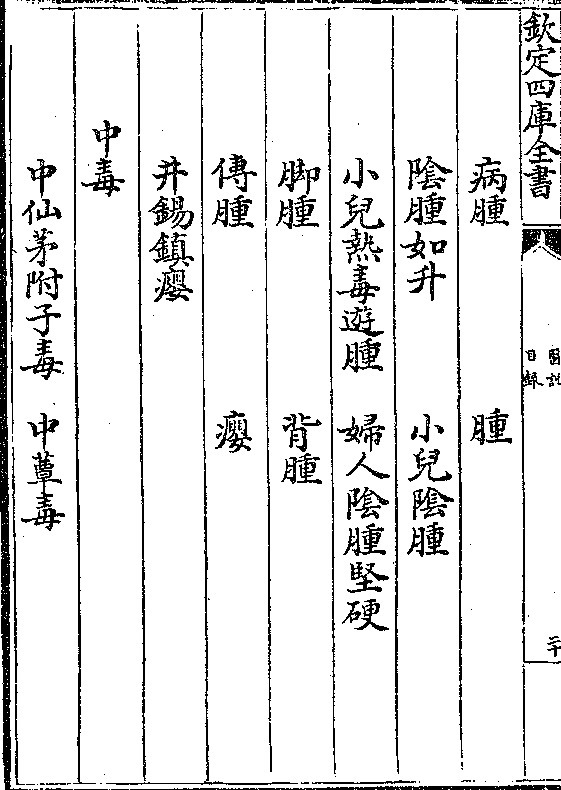 欽定四庫全書
醫説
目録
二十
病腫 腫
陰腫如升 小兒陰腫
小兒熱毒遊腫 婦人陰腫堅硬
脚腫 背腫
傳腫 瘿
井錫鎮瘿
中毒
中仙茅附子毒 中蕈毒